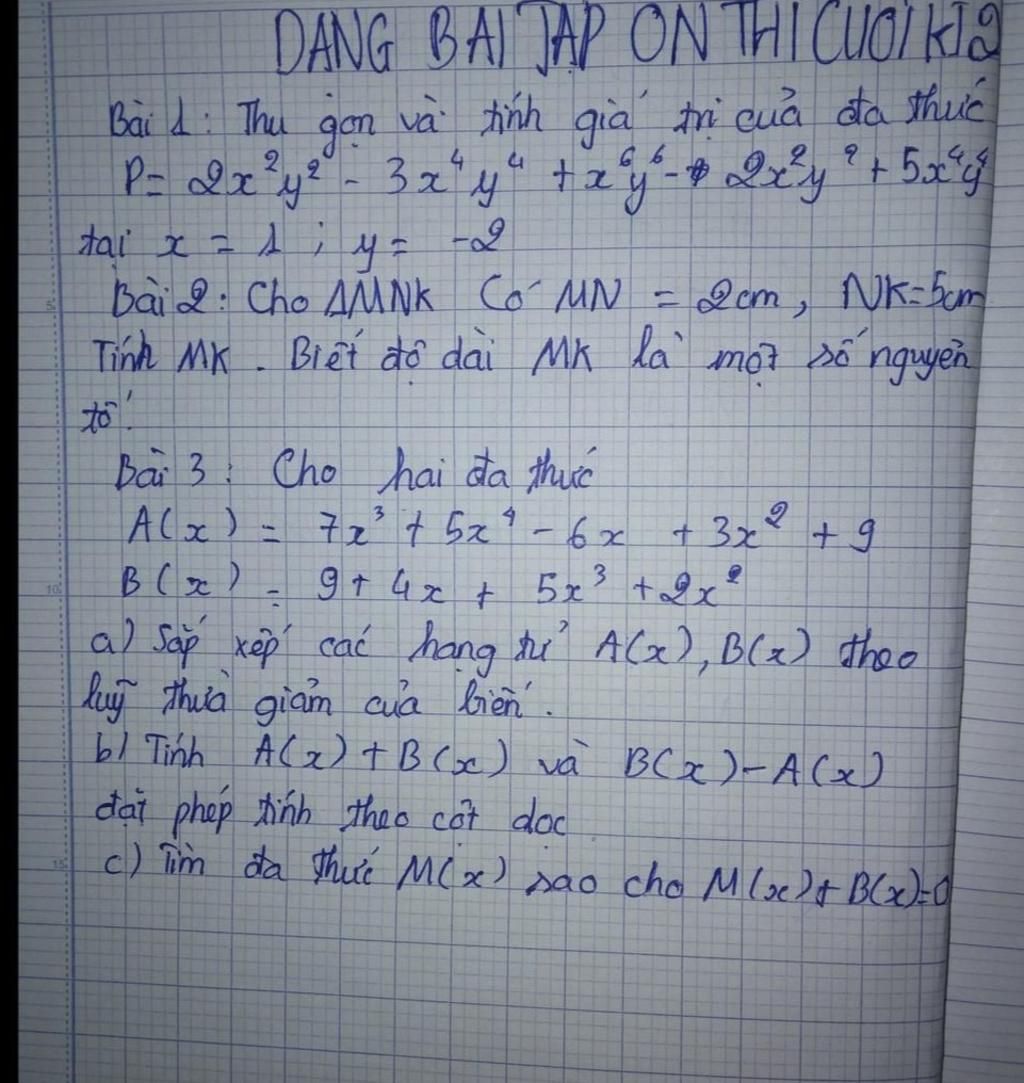 DẠNG BÀI TẬP ÔN THI CUỐI KÌ 2
Bài 1: Thu gọn và tính giá trị của đa thức
P = 2x²y² - 3x⁴y⁴ + x⁶y⁶ - 2x²y² + 5x⁴y⁴
tại x = 1 ; y = -2
Bài 2: Cho ΔMNK Có MN = 2cm, NK=5cm
Tính MK. Biết độ dài MK là một số nguyên
tố.
Bài 3: Cho hai đa thức
A(x) = 7x³ + 5x⁴ - 6x + 3x² + 9
B(x) = 9 + 4x + 5x³ + 2x²
a) Sắp xếp các hạng tử A(x), B(x) theo
luỹ thừa giảm của biến.
b) Tính A(x) + B(x) và B(x) - A(x)
đặt phép tính theo cột dọc
c) Tìm đa thức M(x) sao cho M(x) + B(x)=0